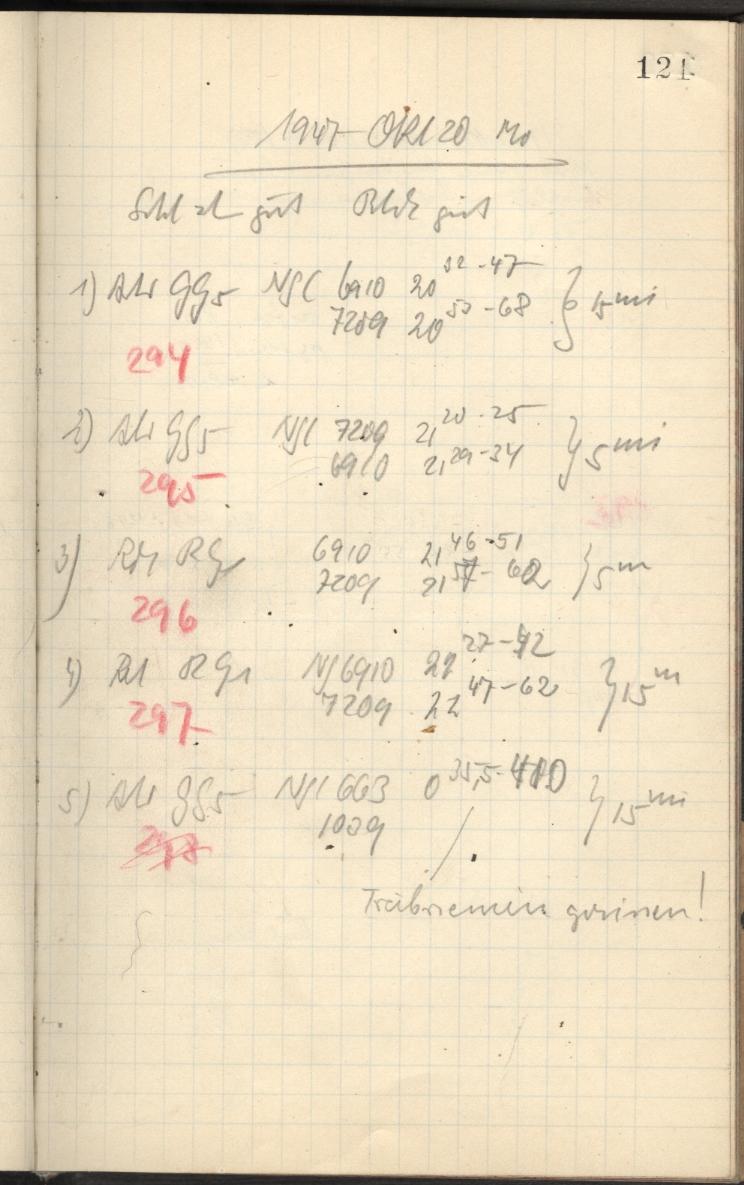 121
1947 Okt 20 Mo
gut Blck gut
1) GG5 NGC 6910 20 32-47 } 15 mi
7209 20 53-68
294
2) GG5 NGC 7209 21 20-25 } 5 mi
6910 21 29-34
295
3) RG1 6910 21 46-51 } 5 m
7209 21 57-62
296
4) RG1 NG 6910 22 27-42 } 15 m
7209 22 47-62
297
5) GG5 NGC 663 0 35,5- } 15 mi
1039 /
Treibriemen gerissen!